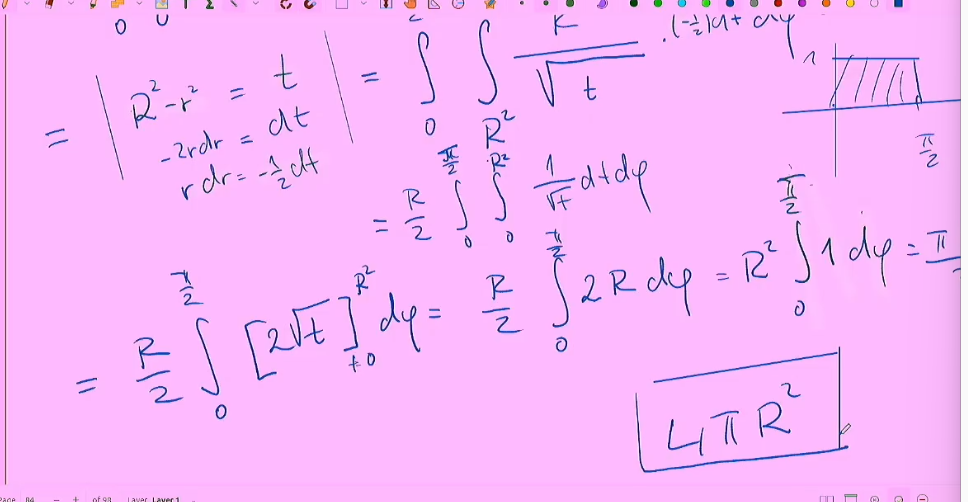 0 0
= | R²-r² = t | = ∫ ∫ R/√t · (-½)dt dφ
-2rdr = dt
r dr = -½dt
0 R²
1
π/2
= R/2 ∫₀^{π/2} ∫₀^{R²} 1/√t dt dφ
= R/2 ∫₀^{π/2} [2√t]_{t=0}^{R²} dφ = R/2 ∫₀^{π/2} 2R dφ = R² ∫₀^{π/2} 1 dφ = π
4πR²
Page 84 - + of 93 Layer Layer 1